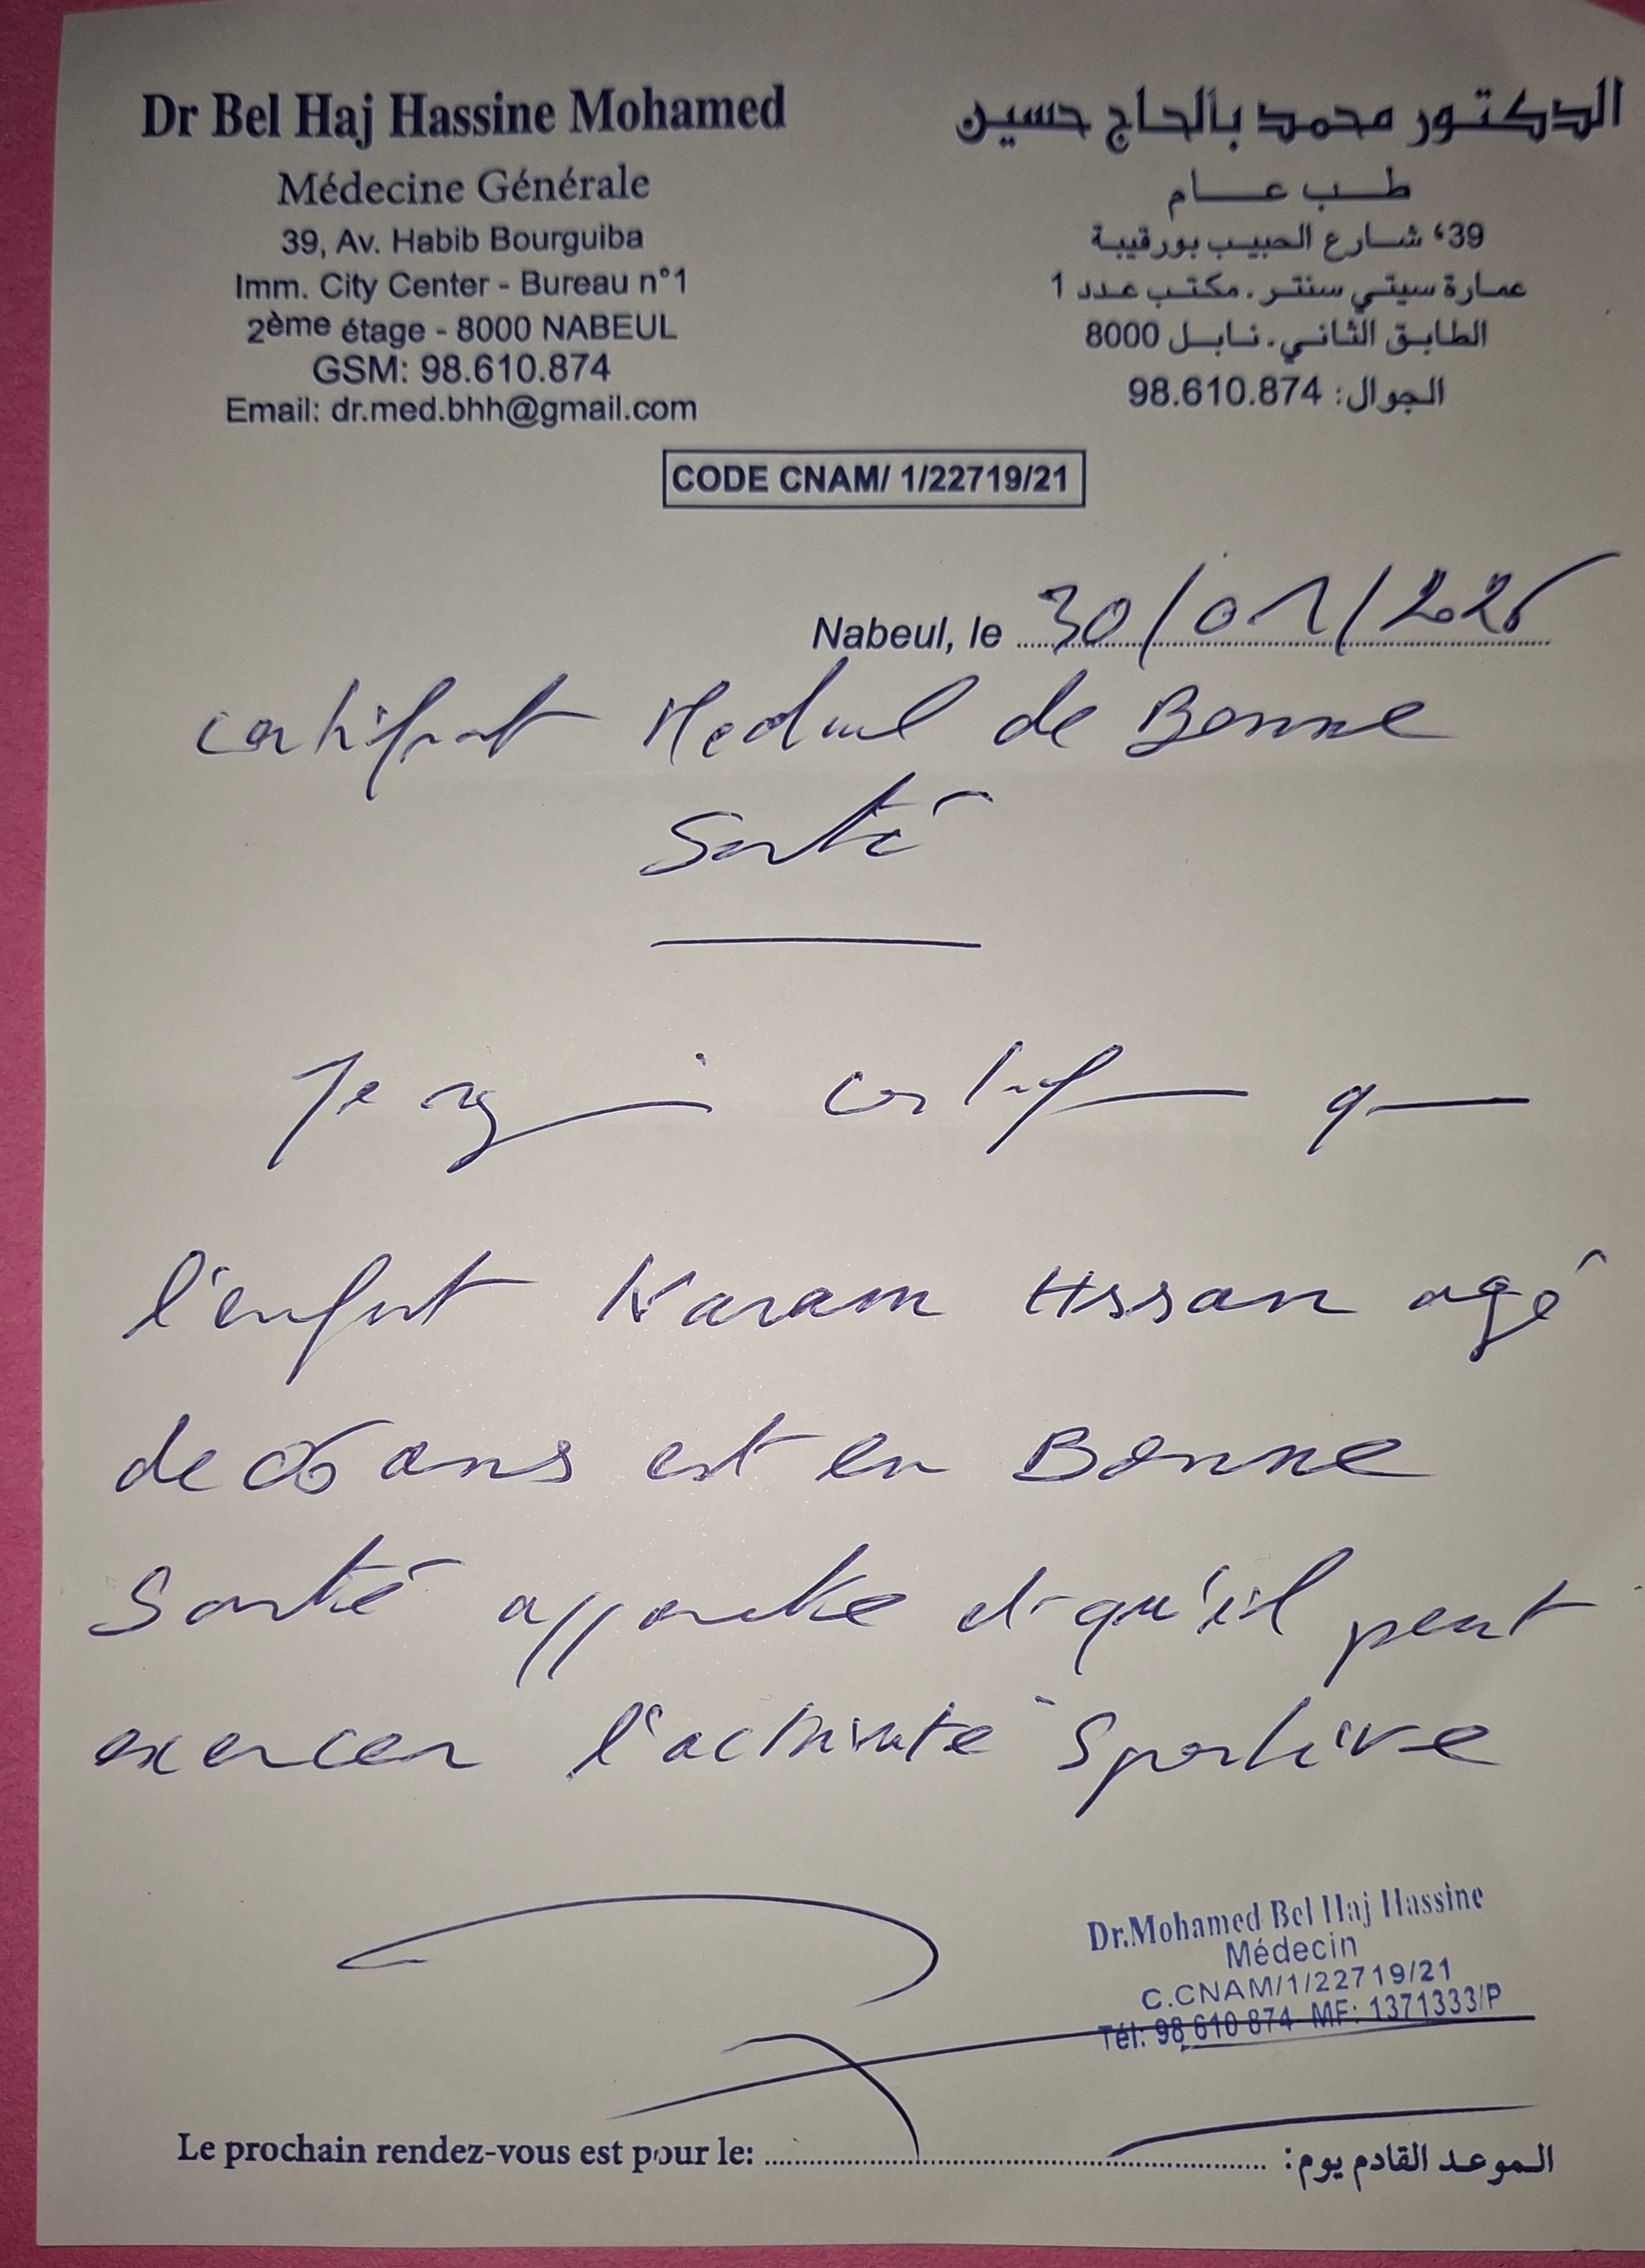 Dr Bel Haj Hassine Mohamed
Médecine Générale
39, Av. Habib Bourguiba
Imm. City Center - Bureau n°1
2ème étage - 8000 NABEUL
GSM: 98.610.874
Email: dr.med.bhh@gmail.com
الدكتور محمد بالحاج حسين
طب عام
39، شارع الحبيب بورقيبة
عمارة سيتي سنتر . مكتب عدد 1
الطابق الثاني . نابل 8000
الجوال: 98.610.874
CODE CNAM/ 1/22719/21
Nabeul, le 30/01/2026
certificat Medical de Bonne
Santé
Je certifie que
l'enfant Karam Hssan agé
de 06 ans est en Bonne
Santé apparente et qu'il peut
exercer l'activité Sportive
Dr.Mohamed Bel Haj Hassine
Médecin
C.CNAM/1/22719/21
Tél: 98 610 874 MF: 1371333/P
Le prochain rendez-vous est pour le: الموعد القادم يوم: